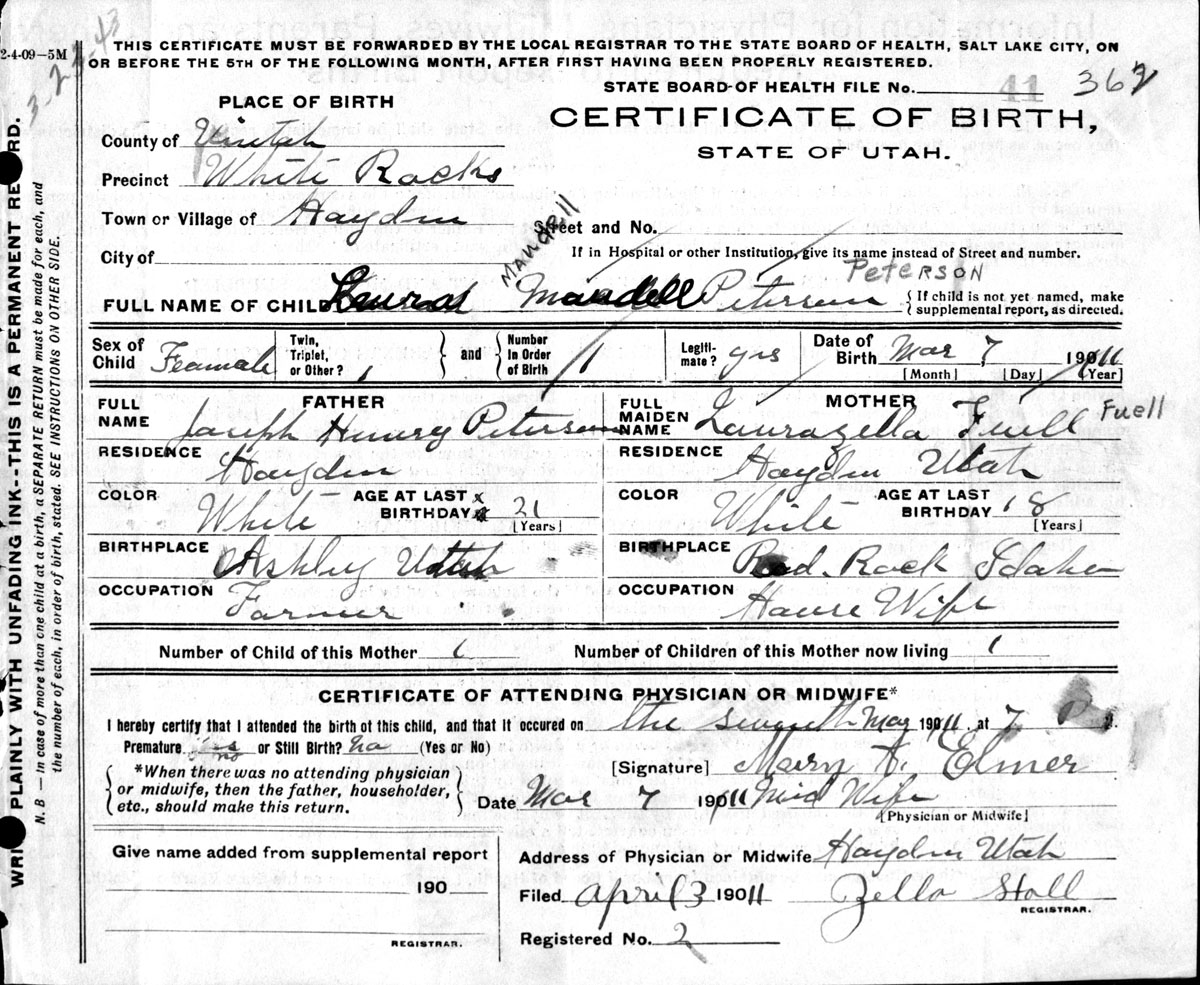 2-4-09—5M
3-2-43
THIS CERTIFICATE MUST BE FORWARDED BY THE LOCAL REGISTRAR TO THE STATE BOARD OF HEALTH, SALT LAKE CITY, ON
OR BEFORE THE 5TH OF THE FOLLOWING MONTH, AFTER FIRST HAVING BEEN PROPERLY REGISTERED.
STATE BOARD OF HEALTH FILE No. 41 362
PLACE OF BIRTH
CERTIFICATE OF BIRTH,
STATE OF UTAH.
County of Uintah
Precinct White Rocks
Town or Village of Hayden
Street and No.
City of
If in Hospital or other Institution, give its name instead of Street and number.
MAUDRILL PETERSON
FULL NAME OF CHILD Petersen { If child is not yet named, make
supplemental report, as directed.
Sex of Child Feamale Twin, Triplet, or Other? 1 } and { Number In Order of Birth 1 Legitimate? yes Date of Birth Mar 7 19011
[Month] [Day] [Year]
FATHER MOTHER
FULL NAME Joseph Henry Petersen FULL MAIDEN NAME Laurazella Fuell Fuell
RESIDENCE Hayden RESIDENCE Hayden Utah
COLOR White AGE AT LAST BIRTHDAY 21 [Years] COLOR White AGE AT LAST BIRTHDAY 18 [Years]
BIRTHPLACE Ashley Utah BIRTHPLACE Red Rock Idaho
OCCUPATION Farmer OCCUPATION House Wife
Number of Child of this Mother 1 Number of Children of this Mother now living 1
CERTIFICATE OF ATTENDING PHYSICIAN OR MIDWIFE*
I hereby certify that I attended the birth of this child, and that it occured on the seventh Mar 19011 at 7 P M.
Premature no or Still Birth? No (Yes or No)
[Signature] Mary A. Elmer
*When there was no attending physician
or midwife, then the father, householder,
etc., should make this return.
Date Mar 7 19011 Mid Wife
[Physician or Midwife]
Give name added from supplemental report
Address of Physician or Midwife Hayden Utah
190
Filed April 3 19011 Zella Stall
REGISTRAR.
REGISTRAR.
Registered No. 2
WRITE PLAINLY WITH UNFADING INK--THIS IS A PERMANENT RECORD.
N. B — In case of more than one child at a birth, a SEPARATE RETURN must be made for each, and
the number of each, in order of birth, stated. SEE INSTRUCTIONS ON OTHER SIDE.